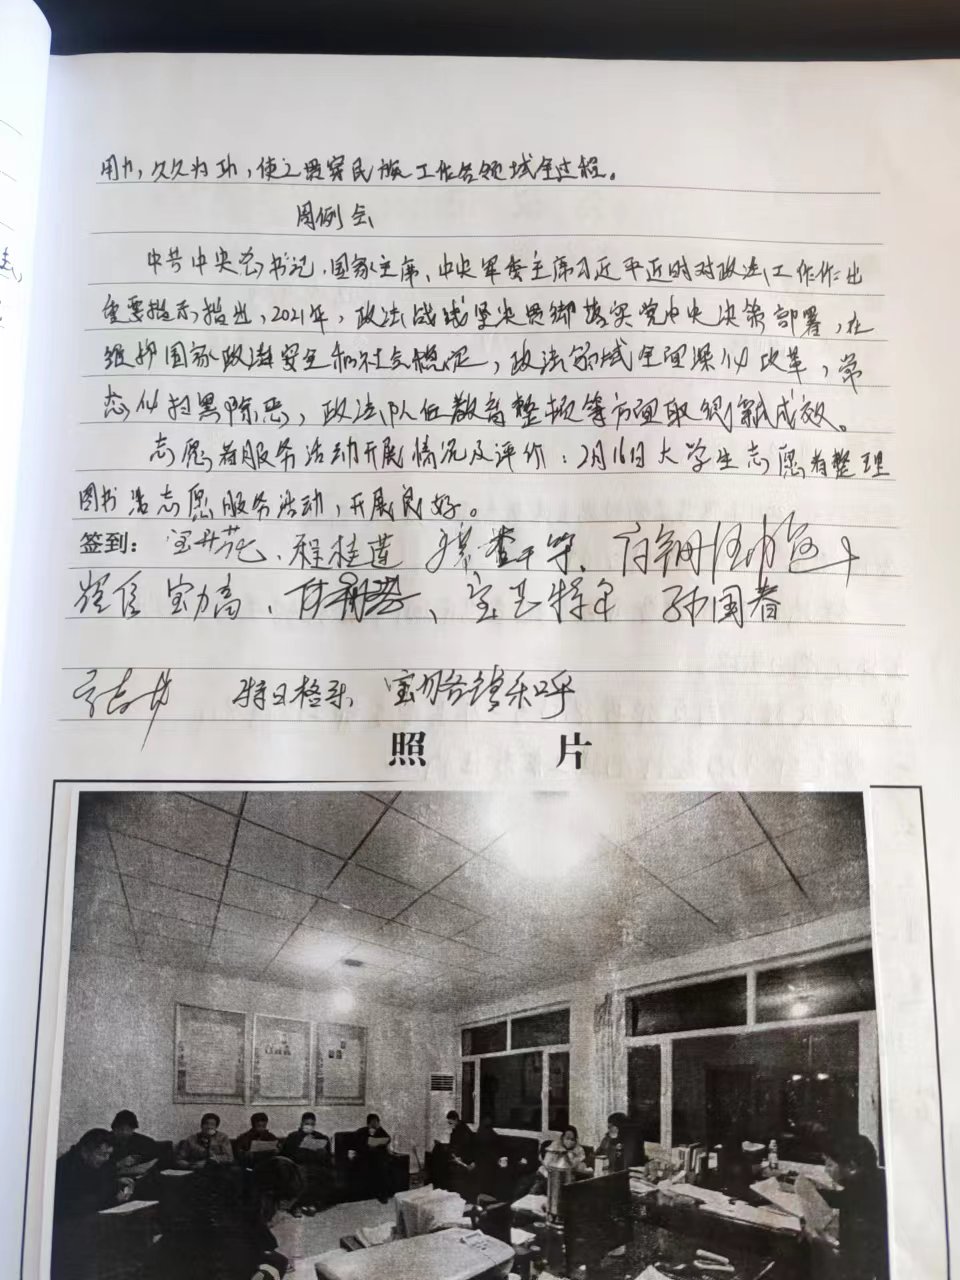 用力,久久为功,使之贯穿民族工作各领域全过程。
周例会
中共中央总书记、国家主席、中央军委主席习近平近时对政法工作作出
重要指示指出,2021年,政法战线坚决贯彻落实党中央决策部署,在
维护国家政治安全和社会稳定,政法领域全面深化改革,常
态化扫黑除恶,政法队伍教育整顿等方面取得了新成效。
志愿者服务活动开展情况及评价:2月16日大学生志愿者整理
图书志愿服务活动,开展良好。
签到: 程桂莲
宝力高、 孙国春
特日格乐
照 片